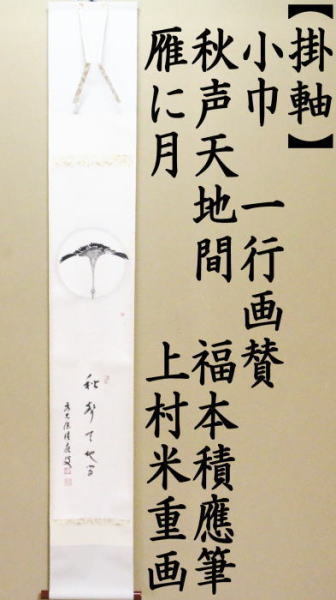 【掛軸】
小巾　一行画賛
秋声天地間　福本積應筆
雁に月　上村米重画
秋声天地間